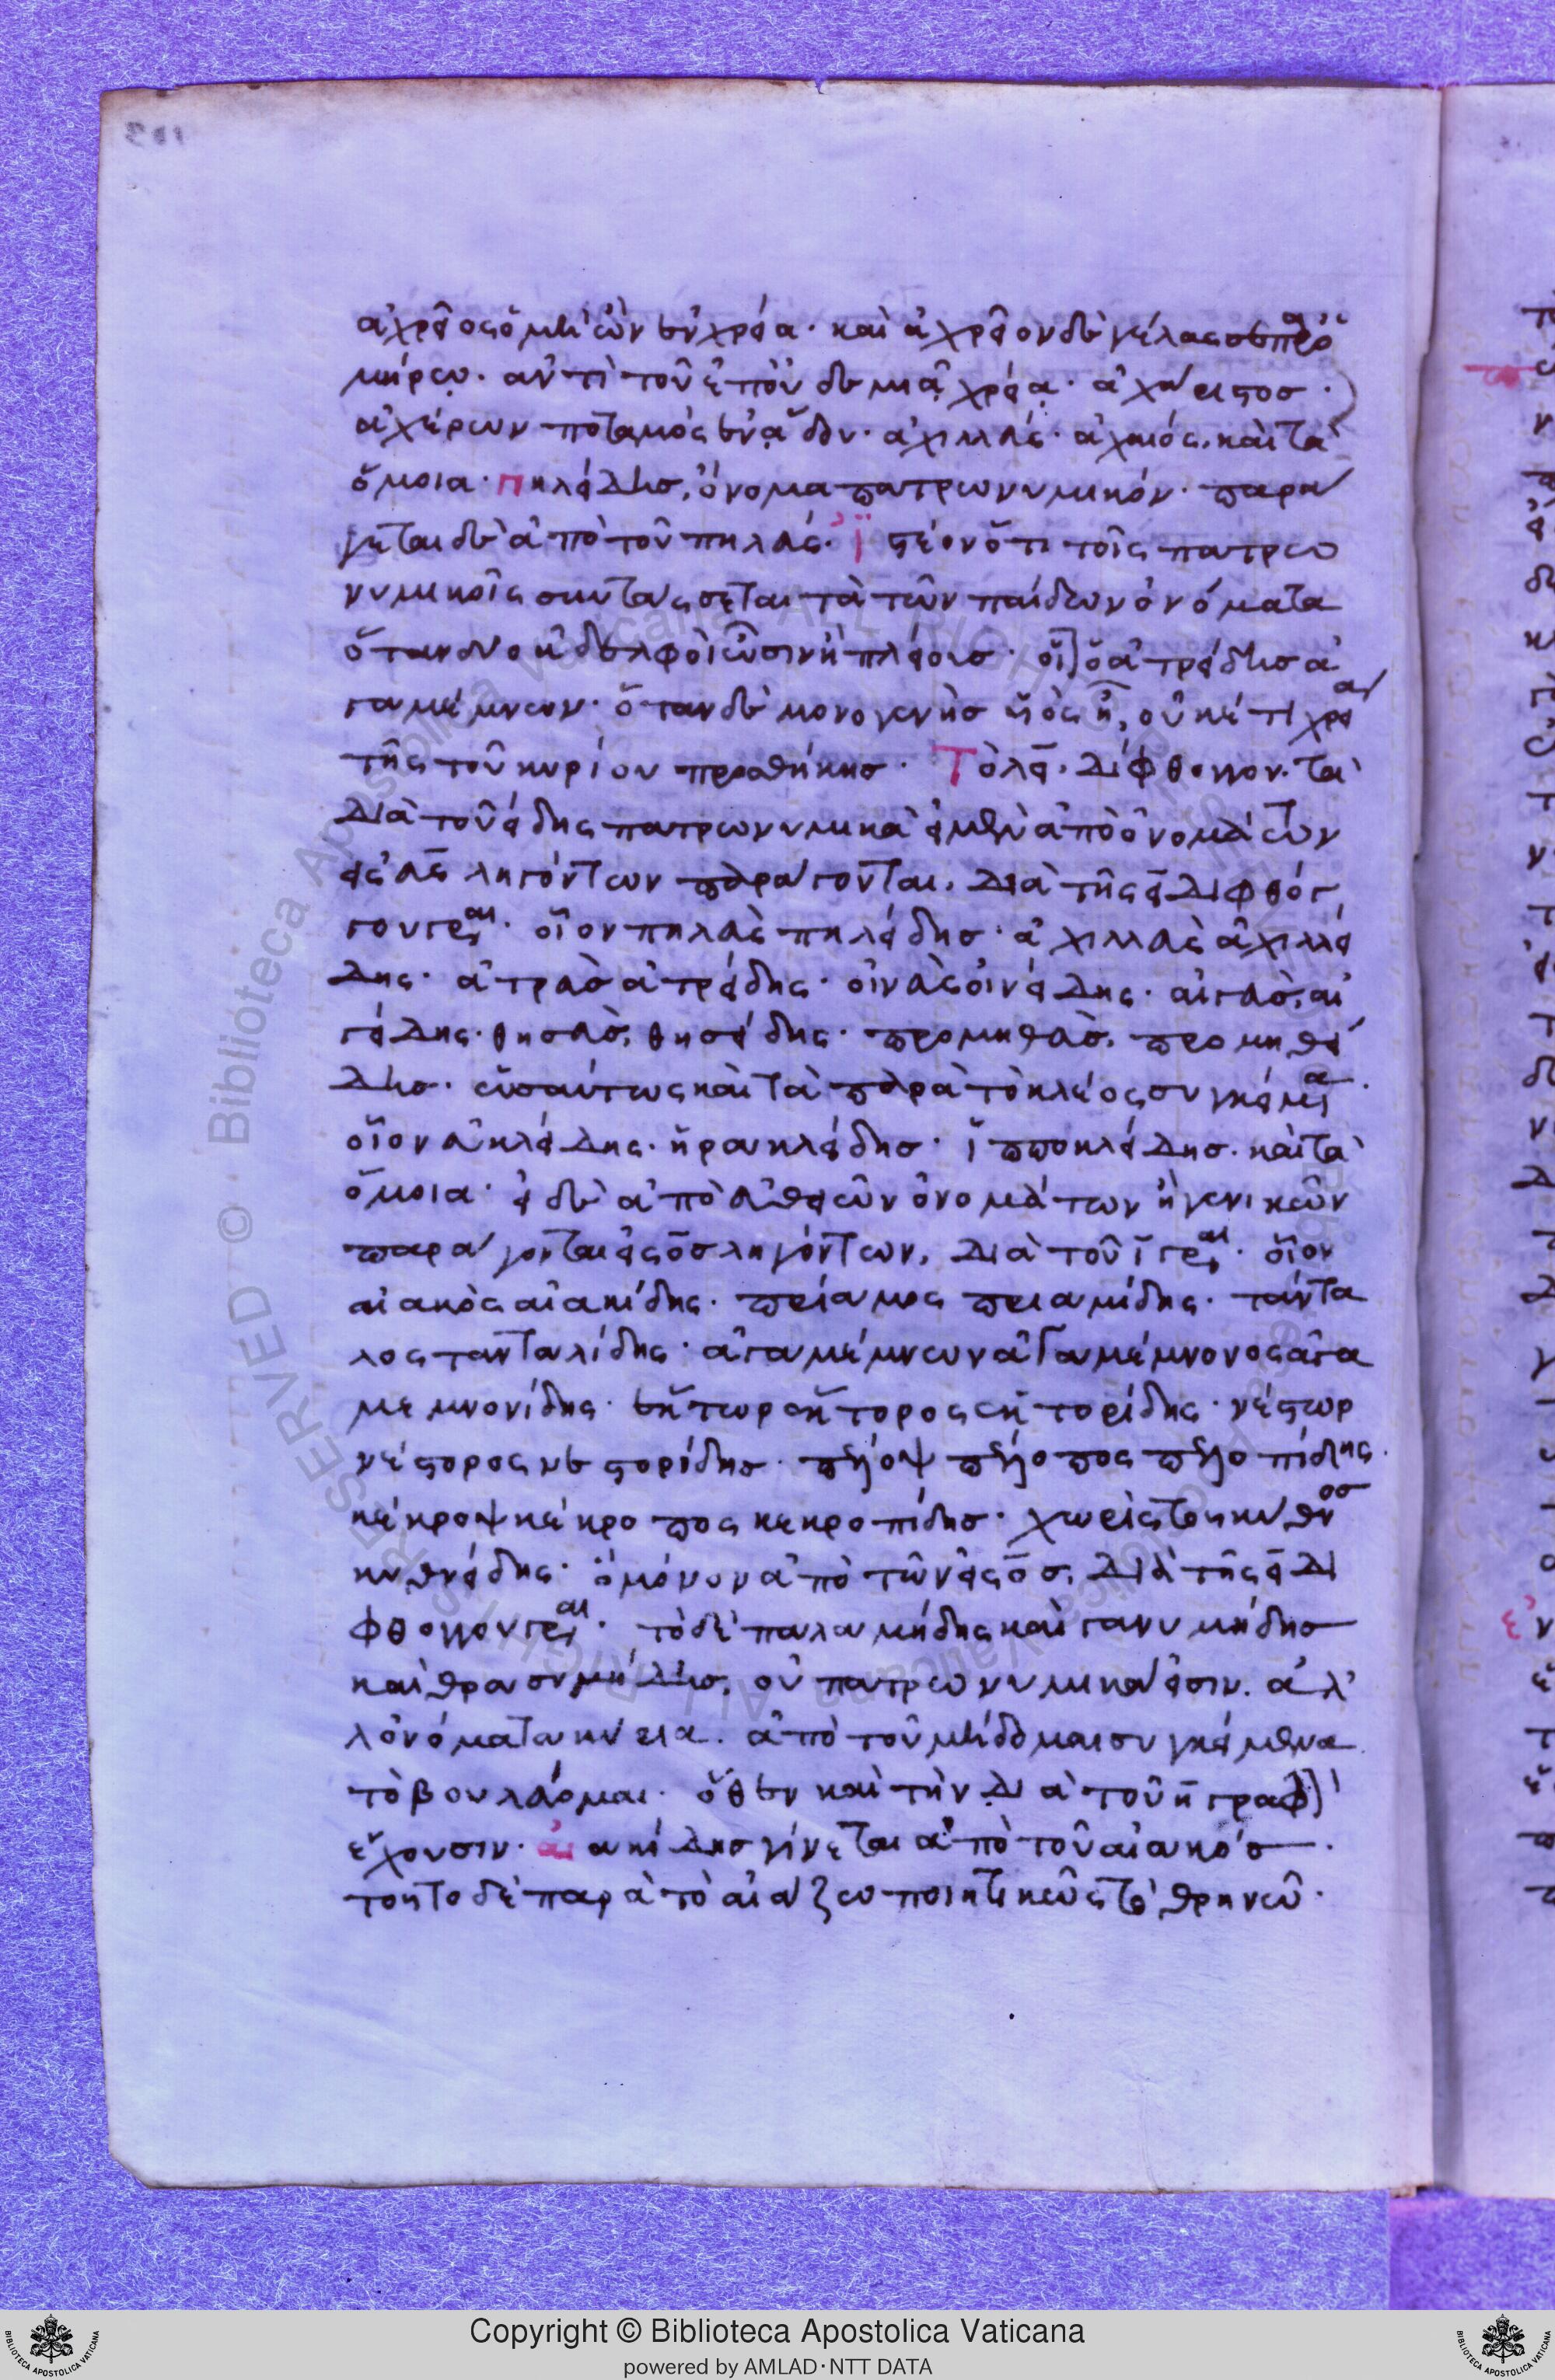 ἀχρεῖος ὁ μὴ ὢν ἐν χρεία· καὶ ἀχρεῖον δὲ γέλασσε παρ ὁ
μήρω. ἀντὶ τοῦ ἐπ' οὐδεμιᾷ χρείᾳ· ἀχάριστος·
ἀχέρων ποταμὸς ἐν ᾅδου· ἀχιλλεύς· ἀχαιός. καὶ τὰ
ὅμοια· πηλείδης, ὄνομα πατρωνυμικόν· παρά
γεται δὲ ἀπὸ τοῦ πηλεύς· ἰστέον ὅτι τοῖς πατρω
νυμικοῖς συντάσσεται τὰ τῶν παίδων ὀνόματα
ὅταν δύο ἀδελφοὶ ὦσιν ἢ πλείους· οἷον ὁ ἀτρείδης ἀ
γαμέμνων· ὅταν δὲ μονογενὴς υἱὸς ᾖ, οὐκέτι χρεία
τῆς τοῦ κυρίου προσθήκης· Τὸ λει, δίφθογγον. τὰ
διὰ τοῦ είδης πατρωνυμικὰ εἰ μὲν ἀπὸ ὀνομάτων
εἰς ευς ληγόντων παράγονται, διὰ τῆς ει διφθόγ
γου γράφεται· οἷον πηλεὺς πηλείδης· ἀχιλλεὺς ἀχιλλεί
δης· ἀτρεὺς ἀτρείδης· οἰνεὺς οἰνείδης· αἰγεὺς, αἰ
γείδης· θησεὺς, θησείδης· προμηθεὺς, προμηθεί
δης· ὡσαύτως καὶ τὰ παρὰ τὸ κλέος συγκείμενα·
οἷον εὐκλείδης· ἡρακλείδης· ἱπποκλείδης· καὶ τὰ
ὅμοια· εἰ δὲ ἀπὸ εὐθειῶν ὀνομάτων ἢ γενικῶν
παράγονται εἰς ος ληγόντων, διὰ τοῦ ι γράφεται· οἷον
αἰακὸς αἰακίδης· πρίαμος πριαμίδης· τάντα
λος τανταλίδης· ἀγαμέμνων ἀγαμέμνονος ἀγα
μεμνονίδης· ἕκτωρ ἕκτορος ἑκτορίδης· νέστωρ
νέστορος νεστορίδης· πέλοψ πέλοπος πελοπίδης·
κέκροψ κέκροπος κεκροπίδης· χωρὶς τοῦ κύθνος
κυθνείδης· ὃ μόνον ἀπὸ τῶν εἰς ος, διὰ τῆς ει δι
φθόγγου γράφεται· τὸ δὲ παλαμήδης καὶ γανυμήδης
καὶ θρασυμήδης, οὐ πατρωνυμικά εἰσιν. ἀλ
λ' ὀνόματα κύρια. ἀπὸ τοῦ μήδομαι συγκείμενα
τὸ βουλεύομαι· ὅθεν καὶ τὴν διὰ τοῦ η γραφὴν
ἔχουσιν· αἰακίδης γίνεται ἀπὸ τοῦ αἰακός·
τοῦτο δὲ παρὰ τὸ αἰάζω ποιητικῶς τὸ θρηνῶ·
Copyright © Biblioteca Apostolica Vaticana
powered by AMLAD·NTT DATA